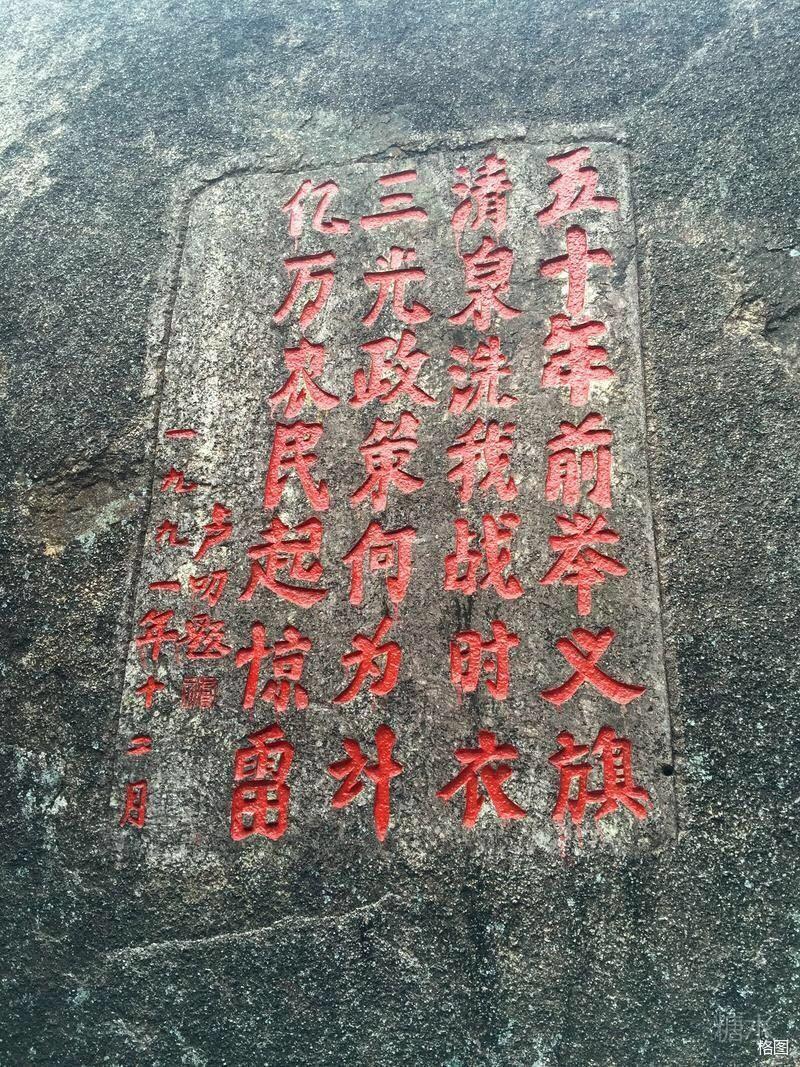 五十年前举义旗
清泉洗我战时衣
三光政策何为计
亿万农民起惊雷
卢叨题
一九九一年十二月
糖水
格图